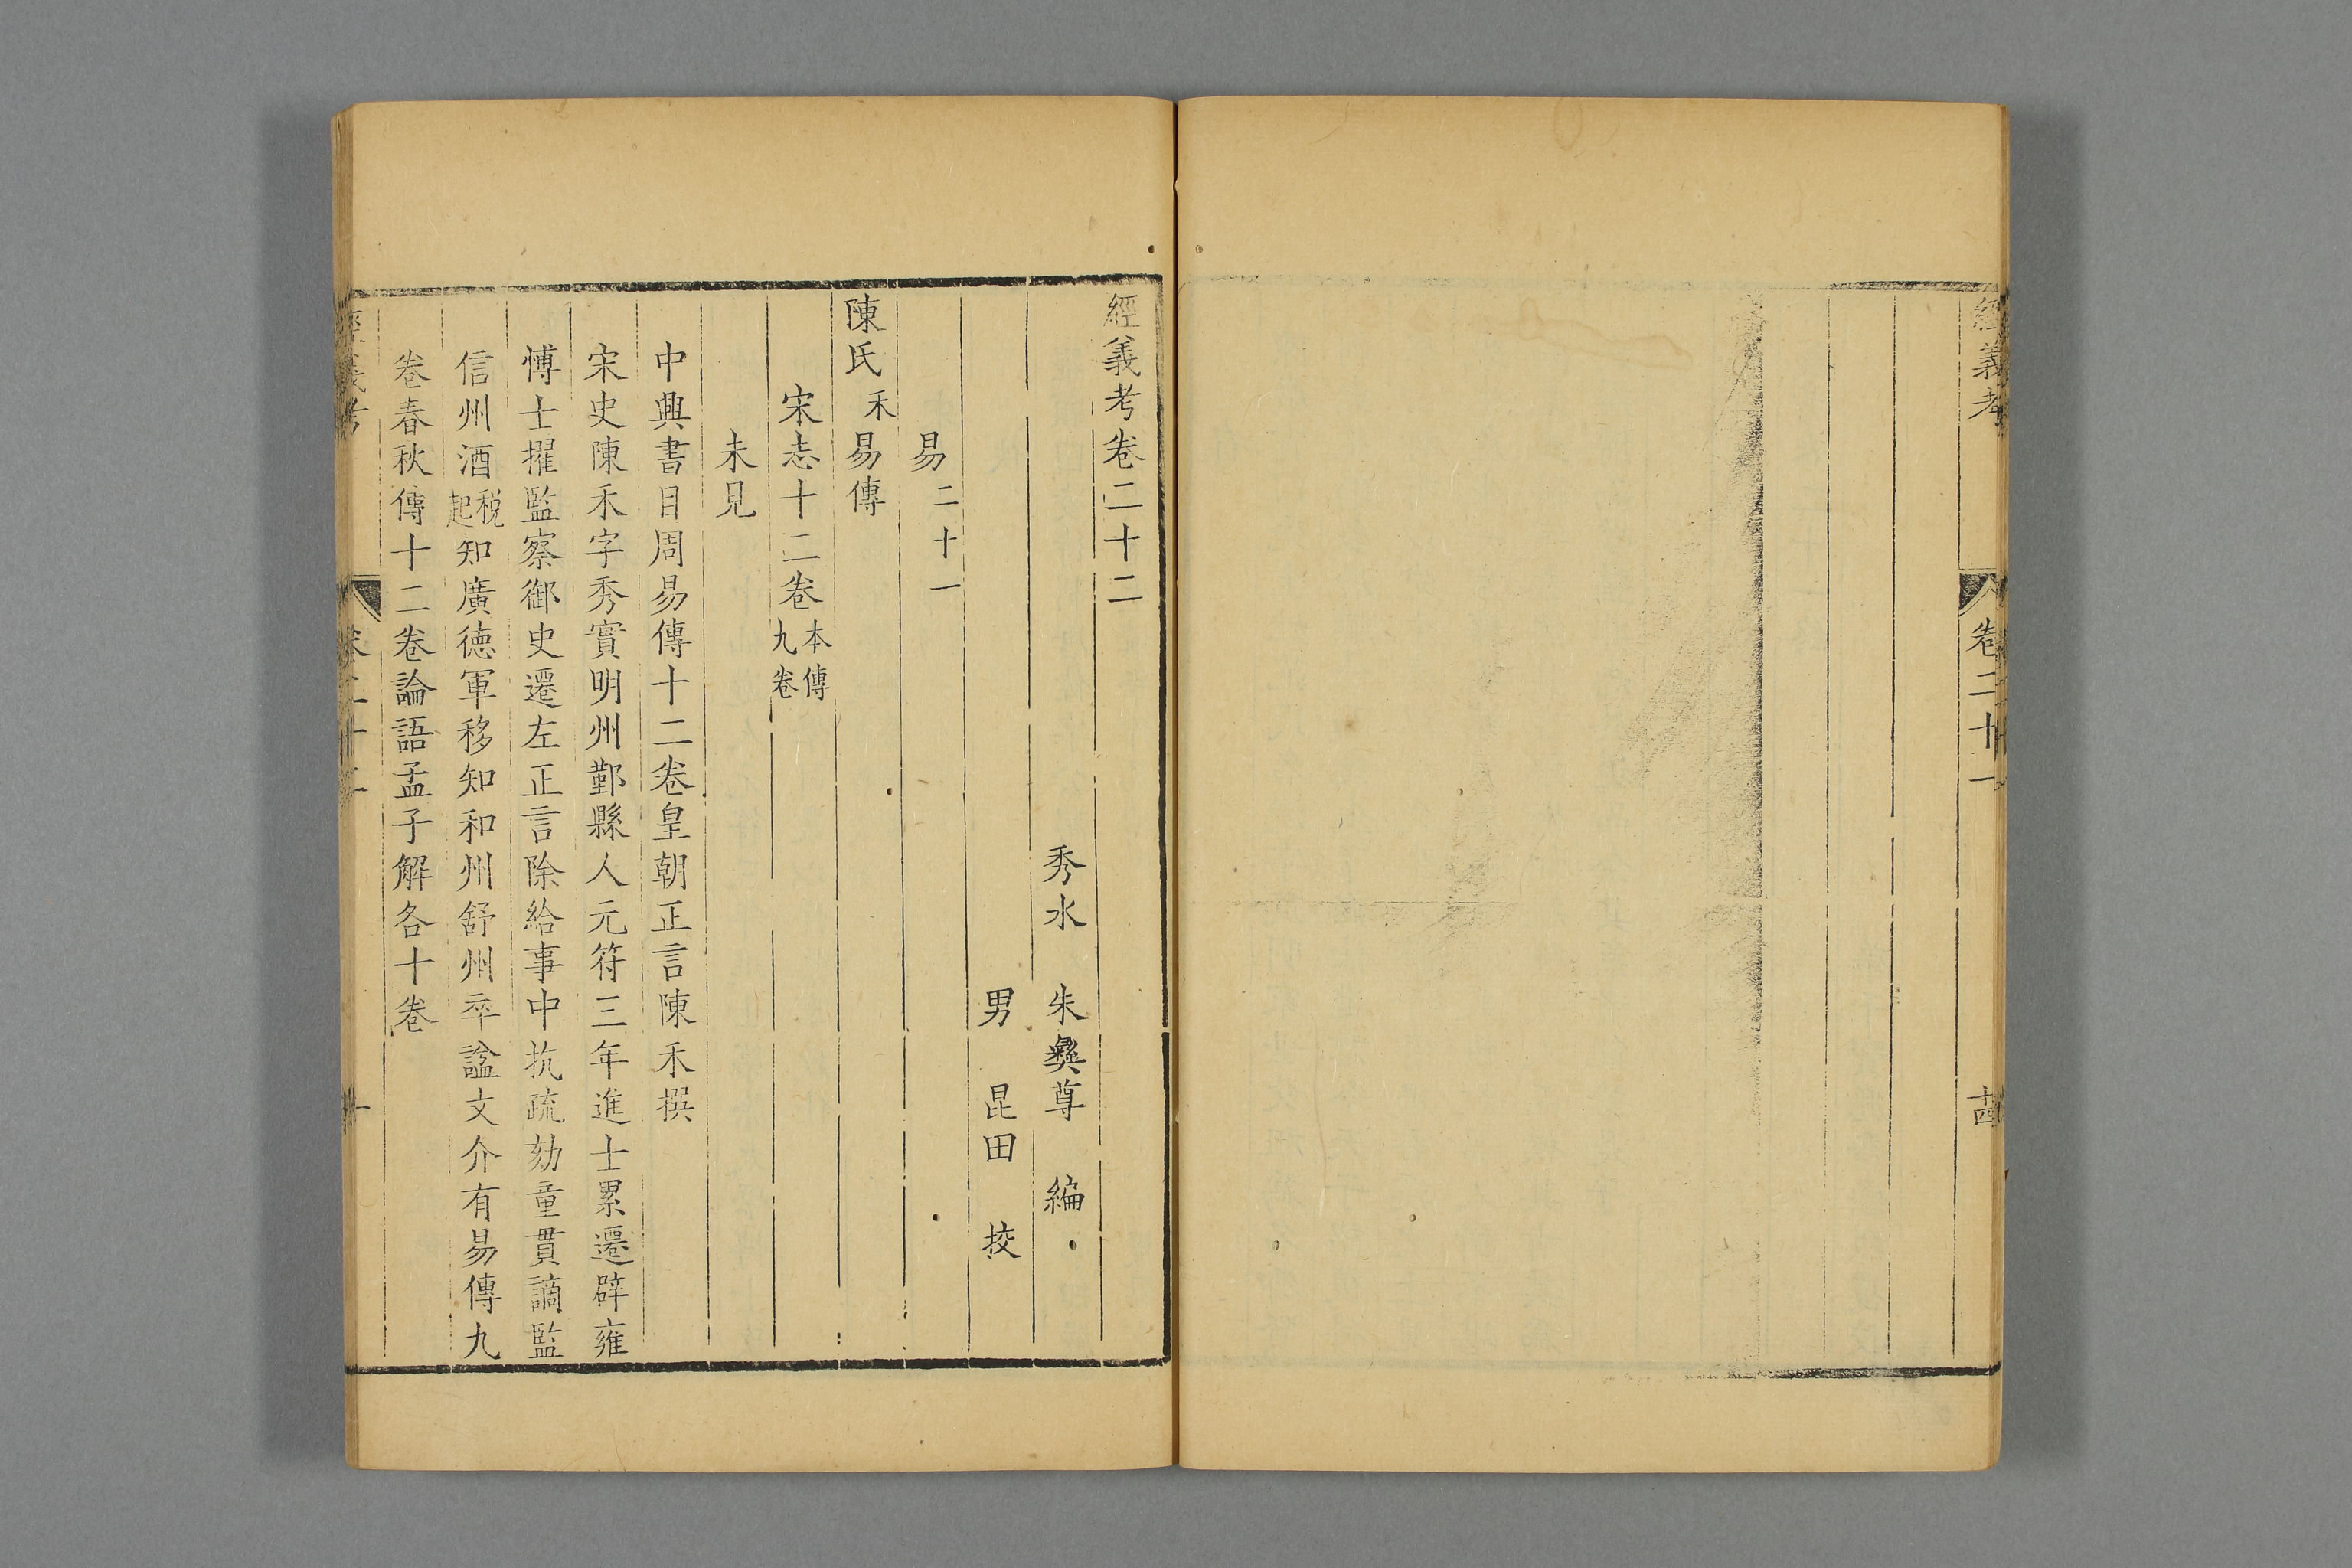 經義考
卷二十一
十四
經義考卷二十二
秀水 朱彝尊 編
男 昆田 挍
易二十一
陳氏禾易傳
宋志十二卷本傳九卷
未見
中興書目周易傳十二卷皇朝正言陳禾撰
宋史陳禾字秀實明州鄞縣人元符三年進士累遷辟雍
愽士擢監察御史遷左正言除給事中抗疏劾童貫謫監
信州酒税起知廣德軍移知和州舒州卒諡文介有易傳九
卷春秋傳十二卷論語孟子解各十卷
經義考
卷二十二
一